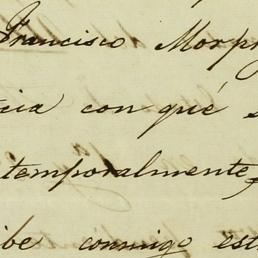 Francisco Morp
cia con qué
temporalmente,
be conmigo est